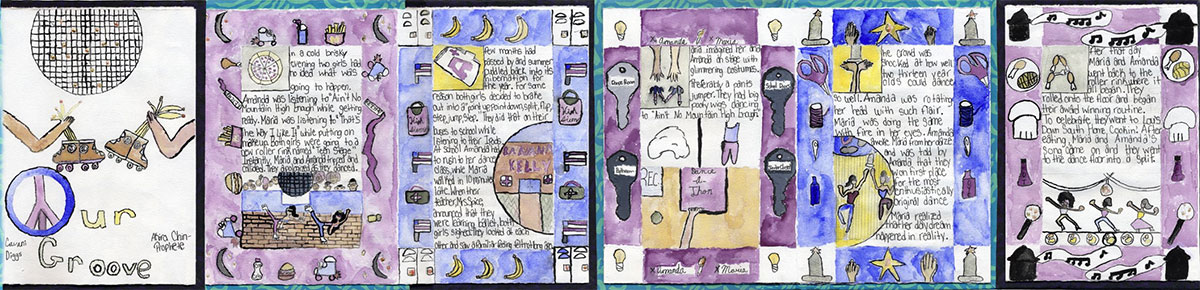 Our
Groove
Cavani
Diggs
Akira Chin-
Prophete
In a cold brisky
evening two girls had
no idea what was
going to happen.
Amanda was listening to "Ain't No
Mountain High Enough" while getting
ready. Maria was listening to "That's
the Way I Like It" while putting on
makeup. Both girls were going to a
roller rink named "Teen Stage"
Instantly, Maria and Amanda tripped and
collided. They apologized as they danced.
few months had
passed by and summer
puddled back into its
hibernation for
the year. For some
reason both girls decided to brake
out into a point, up, point down, split, flip,
step, jump, step. They did that on their
buses to school while
listening to their iPods.
At school Amanda had
to rush to her dance
class, while Maria
walked in 10 minutes
late. When their
teacher, Mrs. Spice,
announced that they
were learning ballet, both
girls sighed. They looked at each
other and saw a
High
School
Amanda
Maria
and imagined her and
Amanda on stage with
glimmering costumes.
Preferably a pants
jumper. They had big
poofy wigs dancing
to "Ain't No Mountain High Enough"
REC
Dance
Amanda
Maria
The crowd was
shocked at how well
two thirteen year
olds could dance
so well. Amanda was rotating
her head with such flair.
Maria was doing the same
with fire in her eyes. Amanda
awoke Maria from her daze
and was told by
Amanda that they
won first place
for the most
enthusiastically
original dance.
Maria realized
her day dream
happened in reality.
After that day
Maria and Amanda
went back to the
roller rink where it
all began. They
rolled onto the floor and began
their award winning routine.
To celebrate they went to Lou's
Down South Home Cookin! After
eating, Maria and Amanda's
song came on and they went
to the dance floor into a split.